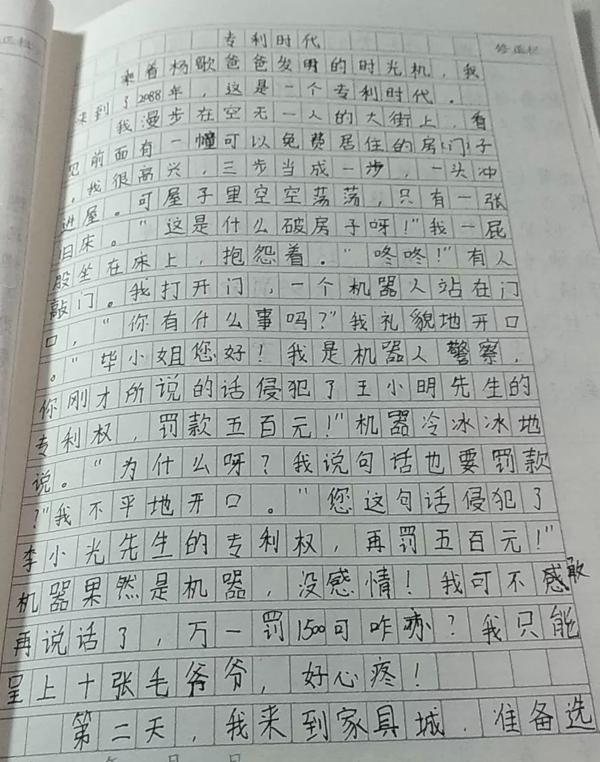 专利时代
修正栏
乘着杨歌爸爸发明的时光机，我
来到了2088年，这是一个专利时代。
我漫步在空无一人的大街上，看
见前面有一幢可以免费居住的房门子
，我很高兴，三步当成一步，一头冲
进屋。可屋子里空空荡荡，只有一张
旧床。“这是什么破房子呀！”我一屁
股坐在床上，抱怨着。“咚咚！”有人
敲门。我打开门，一个机器人站在门
口，“你有什么事吗？”我礼貌地开口
。“毕小姐您好！我是机器人警察，
你刚才所说的话侵犯了王小明先生的
专利权，罚款五百元！”机器冷冰冰地
说。“为什么呀？我说句话也要罚款
？”我不平地开口。“您这句话侵犯了
李小光先生的专利权，再罚五百元！”
机器果然是机器，没感情！我可不敢
再说话了，万一罚1500可咋办？我只能
呈上十张毛爷爷，好心疼！
第二天，我来到家具城，准备选